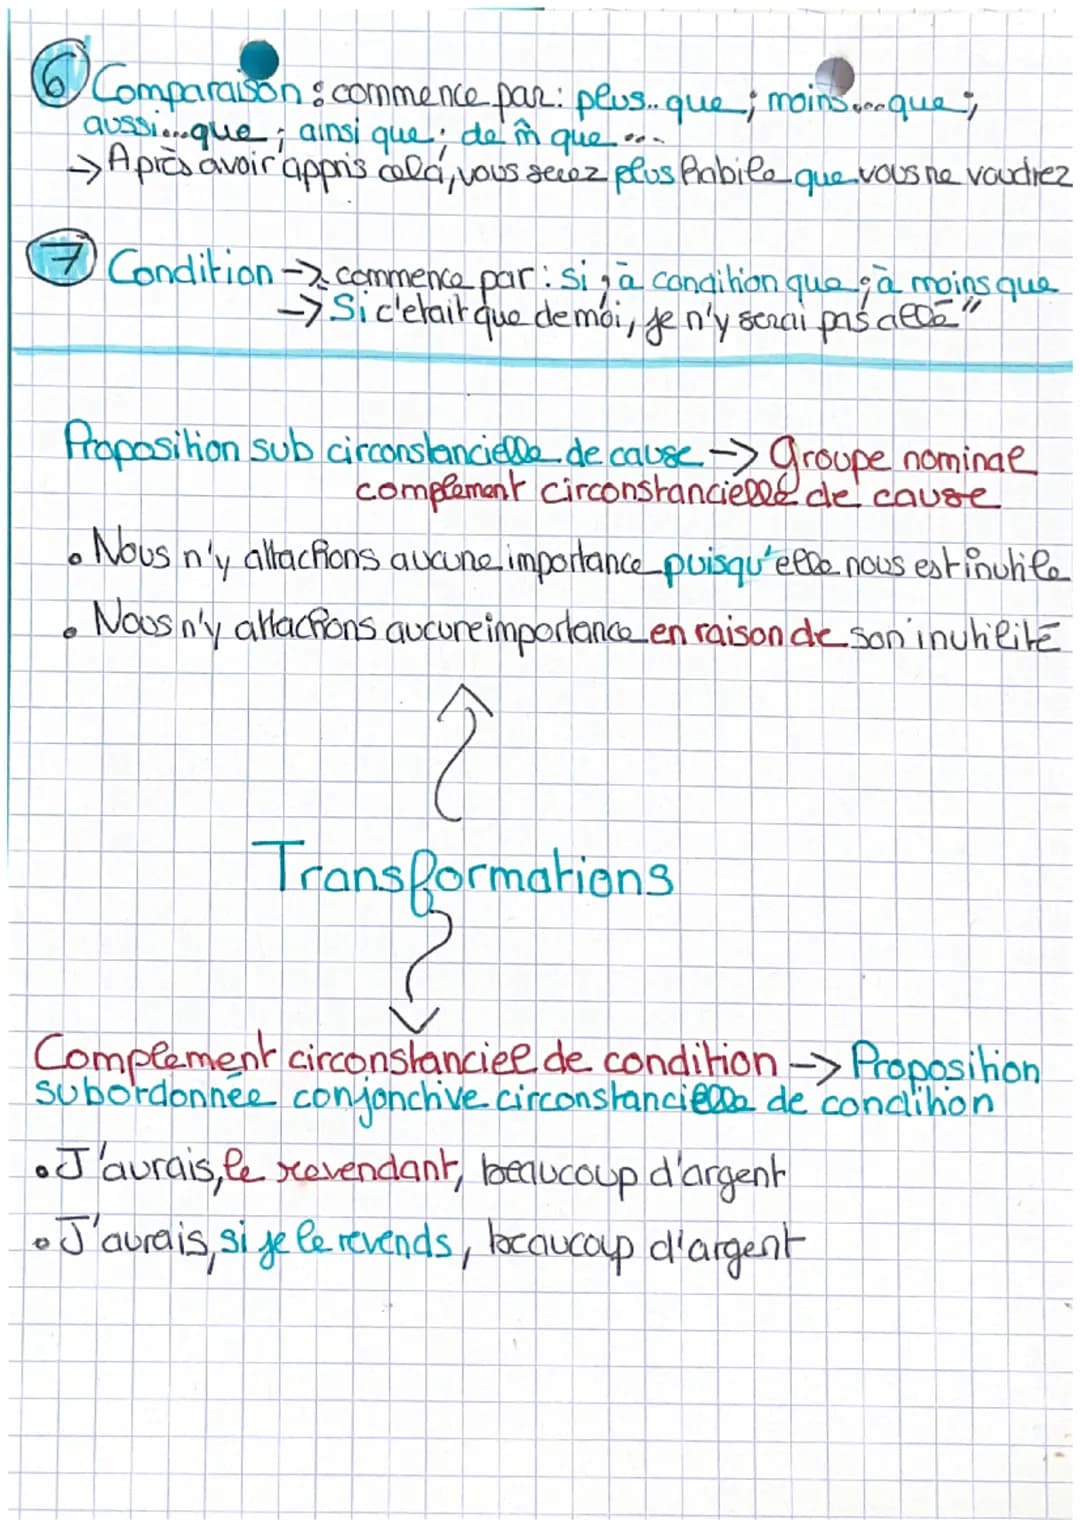 6 Comparaison : commence par : plus.. que ; moins....que ;
aussi....que ; ainsi que ; de m̂ que ....
→ Après avoir appris celà, vous serez plus habile que vous ne voudrez
7 Condition → commence par : si ; à condition que ; à moins que
→ Si c'etait que de moi, je n'y serai pas allé"
Proposition sub circonstancielle de cause → Groupe nominal
complement circonstancielle de cause
• Nous n'y attachons aucune importance puisqu'elle nous est inutile
• Nous n'y attachons aucune importance en raison de son inutilité
Transformations
Complement circonstanciel de condition → Proposition
subordonnée conjonctive circonstancielle de condition
• J'aurais, le revendant, beaucoup d'argent
• J'aurais, si je le revends, beaucoup d'argent